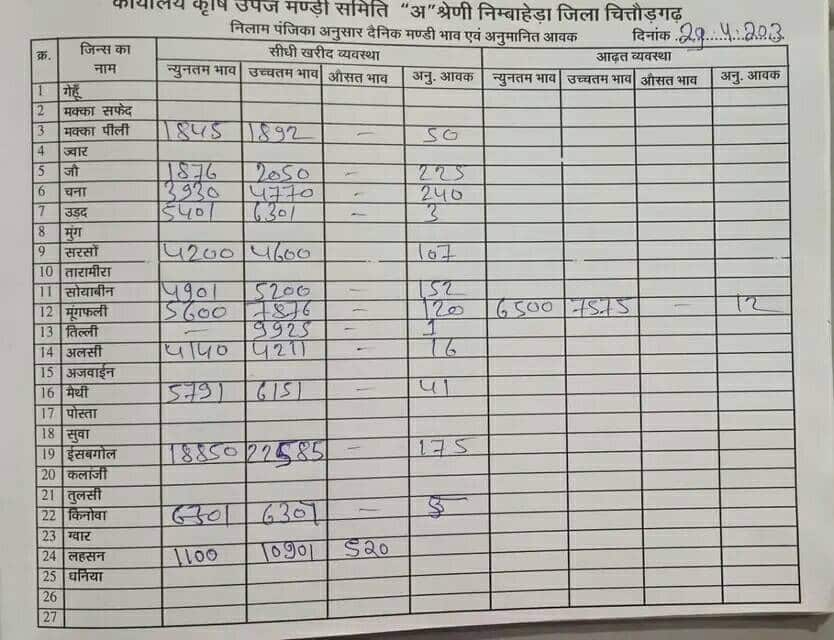 कार्यालय कृषि उपज मण्डी समिति “अ”श्रेणी निम्बाहेड़ा जिला चित्तौड़गढ़
निलाम पंजिका अनुसार दैनिक मण्डी भाव एवं अनुमानित आवक दिनांक 29.4.203
क्र. जिन्स का नाम सीधी खरीद व्यवस्था आढ़त व्यवस्था
न्युनतम भाव उच्चतम भाव औसत भाव अनु. आवक न्युनतम भाव उच्चतम भाव औसत भाव अनु. आवक
1 गेहूँ
2 मक्का सफेद
3 मक्का पीली 1845 1892 – 50
4 ज्वार
5 जौ 1876 2050 – 225
6 चना 3930 4770 – 240
7 उड़द 5401 6301 – 3
8 मुंग
9 सरसों 4200 4600 107
10 तारामीरा
11 सोयाबीन 4901 5200 – 152
12 मूंगफली 5600 7876 – 120 6500 7575 – 12
13 तिल्ली – 9925 – 1
14 अलसी 4140 4211 – 16
15 अजवाईन
16 मेथी 5791 6151 – 41
17 पोस्ता
18 सुवा
19 ईसबगोल 18850 22585 – 175
20 कलांजी
21 तुलसी
22 किनोवा 6701 6307 –
23 ग्वार
24 लहसन 1100 10901 520
25 धनिया
26
27